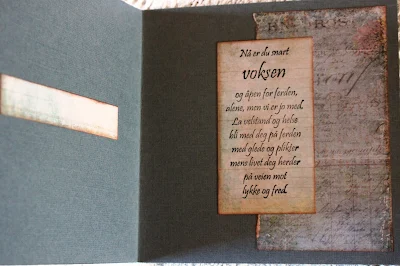 Nå er du snart
voksen
og åpen for ferden,
alene, men vi er jo med.
La velstand og helse
bli med deg på ferden
med glede og plikter
mens livet deg herder
på veien mot
lykke og fred.